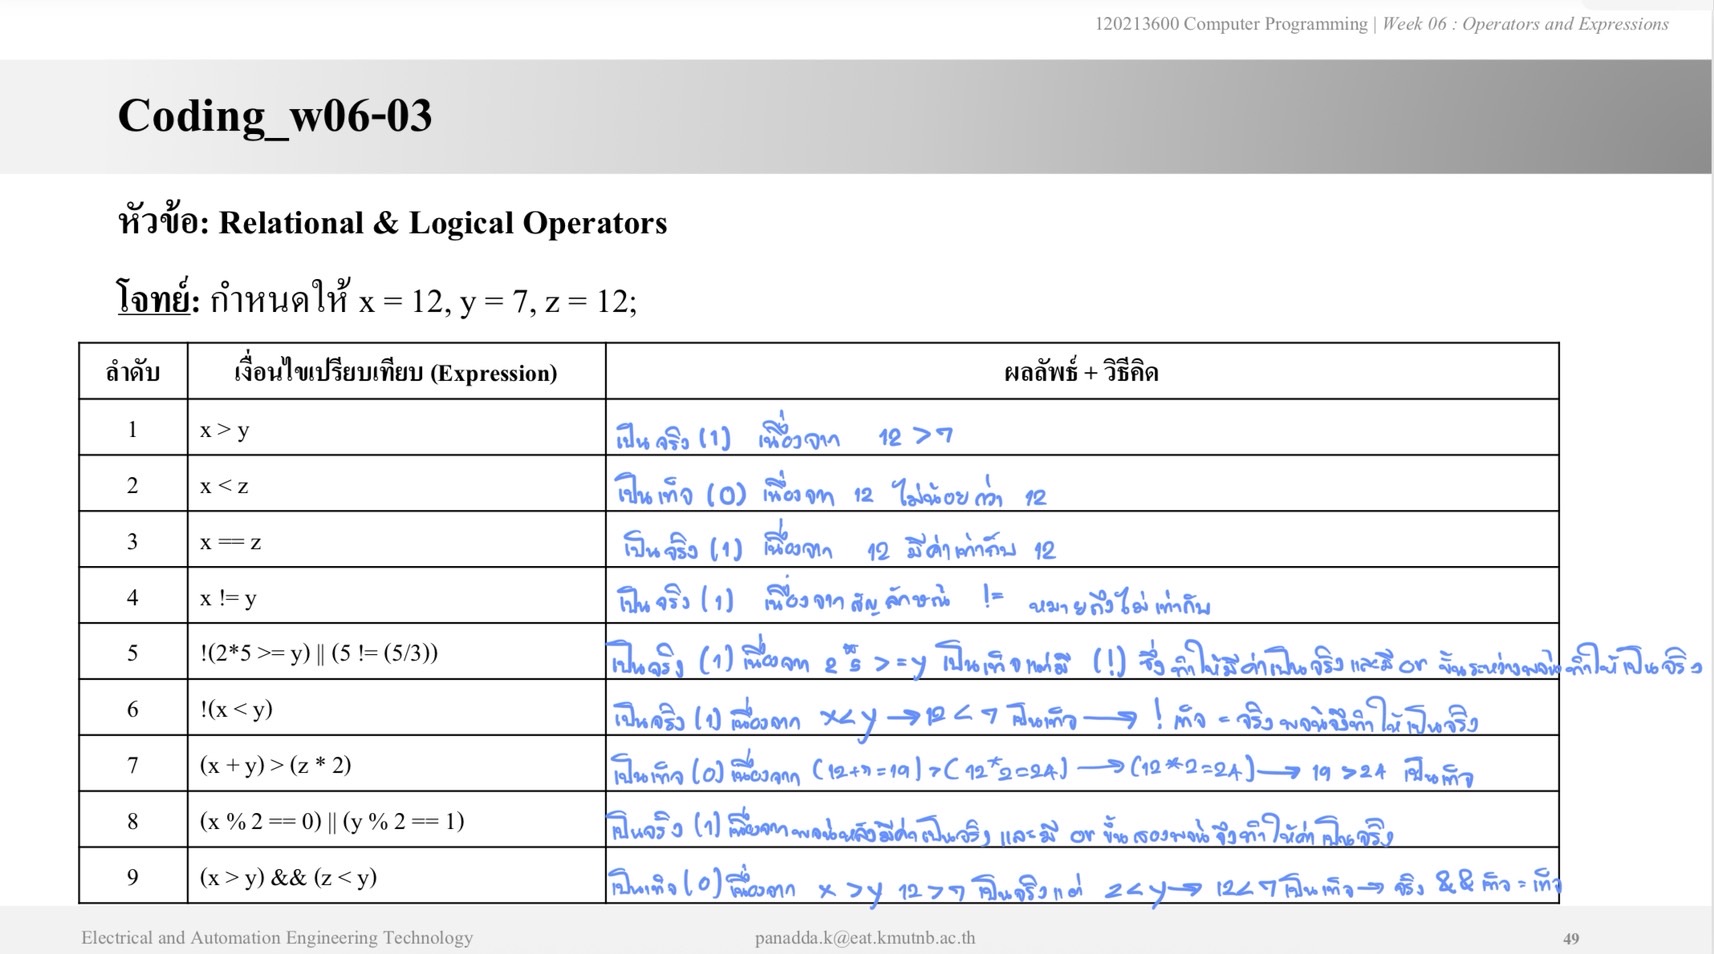 120213600 Computer Programming | Week 06 : Operators and Expressions
Coding_w06-03
หัวข้อ: Relational & Logical Operators
โจทย์: กำหนดให้ x = 12, y = 7, z = 12;
ลำดับ เงื่อนไขเปรียบเทียบ (Expression) ผลลัพธ์ + วิธีคิด
1 x > y เป็นจริง (1) เนื่องจาก 12 > 7
2 x < z เป็นเท็จ (0) เนื่องจาก 12 ไม่น้อยกว่า 12
3 x == z เป็นจริง (1) เนื่องจาก 12 มีค่าเท่ากับ 12
4 x != y เป็นจริง (1) เนื่องจากสัญลักษณ์ != หมายถึงไม่เท่ากับ
5 !(2*5 >= y) || (5 != (5/3)) เป็นจริง (1) เนื่องจาก 2*5 >= y เป็นเท็จ แต่มี (!) ซึ่งทำให้มีค่าเป็นจริง และมี or ขั้นระหว่างพจน์ ทำให้เป็นจริง
6 !(x < y) เป็นจริง (1) เนื่องจาก x < y → 12 < 7 เป็นเท็จ → ! เท็จ = จริง พจน์จึงทำให้เป็นจริง
7 (x + y) > (z * 2) เป็นเท็จ (0) เนื่องจาก (12+7=19) > (12*2=24) → (12*2=24) → 19 > 24 เป็นเท็จ
8 (x % 2 == 0) || (y % 2 == 1) เป็นจริง (1) เนื่องจากพจน์หลังมีค่าเป็นจริง และมี or ขั้นสองพจน์ จึงทำให้ค่าเป็นจริง
9 (x > y) && (z < y) เป็นเท็จ (0) เนื่องจาก x > y 12 > 7 เป็นจริง แต่ z < y → 12 < 7 เป็นเท็จ → จริง && เท็จ = เท็จ
Electrical and Automation Engineering Technology panadda.k@eat.kmutnb.ac.th 49